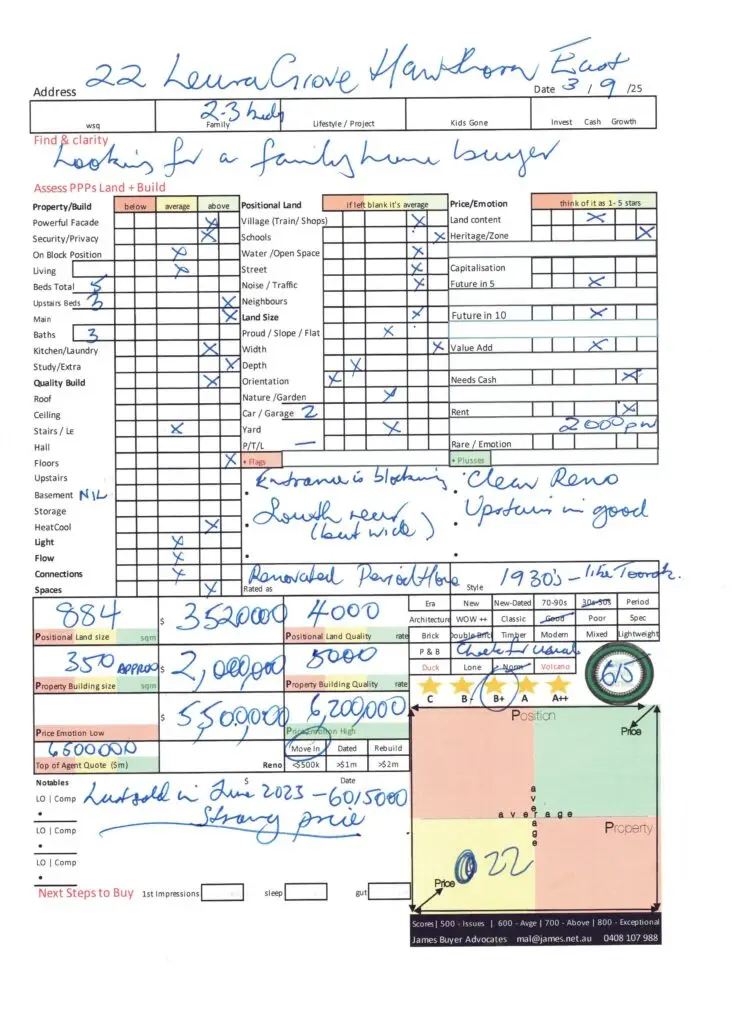 Address 22 Leura Grove Hawthorn East Date 3 / 9 /25
wsq 2-3 kids Family Lifestyle / Project Kids Gone Invest Cash Growth
Find & clarity
Looking for a family home buyer
Assess PPPs Land + Build
Property/Build below average above Positional Land if left blank it's average Price/Emotion think of it as 1- 5 stars
Powerful Facade X Village (Train/ Shops) X Land content X
Security/Privacy X Schools X Heritage/Zone X
On Block Position X Water /Open Space X
Living X Street X Capitalisation
Beds Total 5 Noise / Traffic X Future in 5 X
Upstairs Beds 3 X Neighbours
Main X Land Size X Future in 10 X
Baths 3 Proud / Slope / Flat X
Kitchen/Laundry X Width X Value Add X
Study/Extra X Depth X
Quality Build X Orientation X Needs Cash X
Roof Nature /Garden X
Ceiling Car / Garage 2 Rent X
Stairs / Le X Yard X 2000 pw
Hall P/T/L — Rare / Emotion
Floors X + Flags + Plusses
Upstairs • Entrance is blocking • Clear Reno
Basement NIL
Storage • South rear • Upstairs in good
HeatCool X (but wide)
Light X
Flow X •
Connections X Renovated Period Home 1930's - like Toorak.
Spaces X Rated as Style
884 $ 3520000 4000
Positional Land size sqm Positional Land Quality rate
350 APPROX $ 2,000,000 5000
Property Building size sqm Property Building Quality rate
$ 5,500,000 6,200,000
Price Emotion Low Price Emotion High
6600000 Move In Dated Rebuild
Top of Agent Quote ($m) Reno <$500k >$1m >$2m
Era New New-Dated 70-90s 30s-50s Period
Architecture WOW ++ Classic Good Poor Spec
Brick Double Brick Timber Modern Mixed Lightweight
P & B Check for usual
Duck Lone Norm Volcano
615
C B- B+ A A++
Position
Price
average
average
Property
22
Price
Notables $ Date
LO | Comp Last sold in June 2023 - 6015000
• Strong price
LO | Comp
•
LO | Comp
•
Next Steps to Buy 1st Impressions sleep gut
Scores| 500 - Issues | 600 - Avge | 700 - Above | 800 - Exceptional
James Buyer Advocates mal@james.net.au 0408 107 988